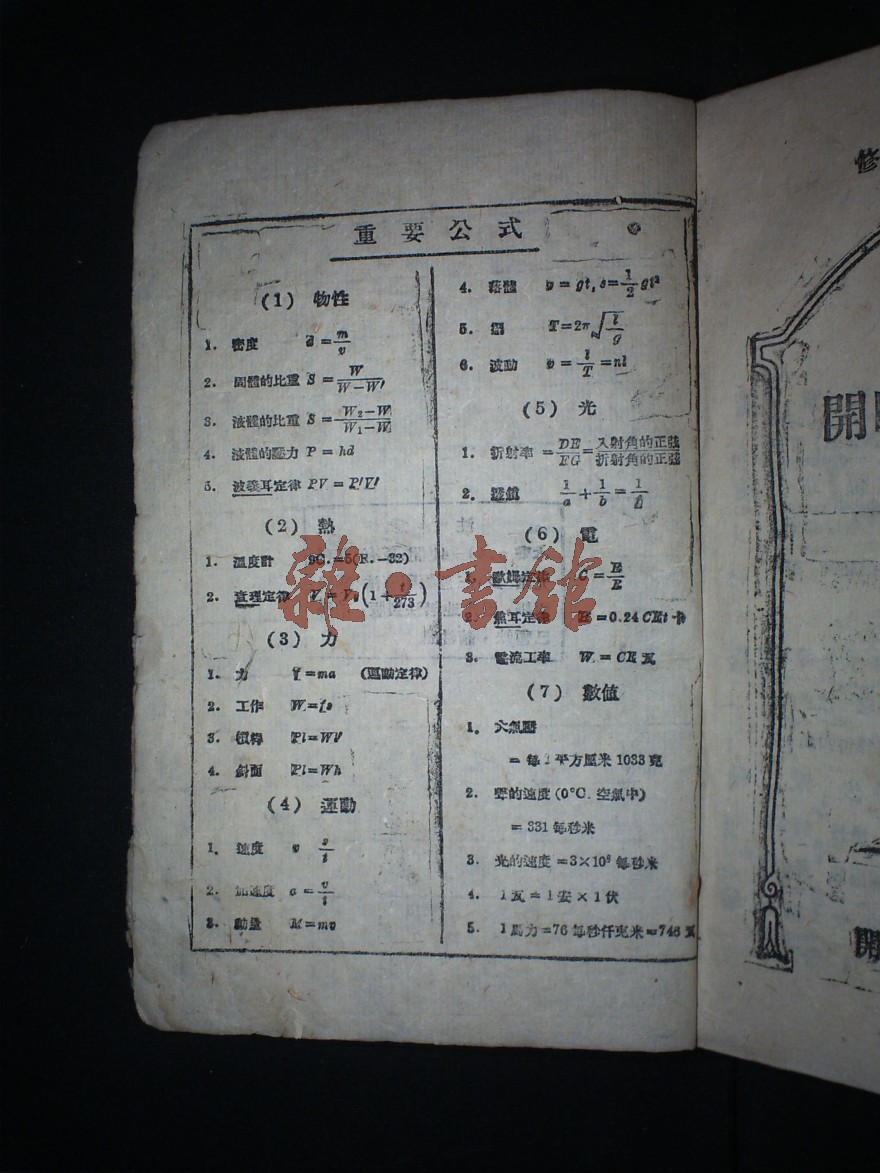 重要公式
(1) 物性
1. 密度 d=m/v
2. 固體的比重 S=W/(W-W')
3. 液體的比重 S=(W₂-W)/(W₁-W)
4. 液體的壓力 P=hd
5. 波義耳定律 PV=P'V'
(2) 熱
1. 溫度計 9C.=5(F.-32)
2. 查理定律 (1+t/273)
(3) 力
1. 力 f=ma (運動定律)
2. 工作 W=fs
3. 槓桿 Pl=Wl'
4. 斜面 Pl=Wh
(4) 運動
1. 速度 v s/t
2. 加速度 a=v/t
3. 動量 M=mv
4. 落體 v=gt, s=1/2 gt²
5. 擺 T=2π√(l/g)
6. 波動 v=l/T=nl
(5) 光
1. 折射率 =DE/FG=入射角的正弦/折射角的正弦
2. 透鏡 1/a+1/b=1/f
(6) 電
1. 歐姆定律 C=E/R
2. 焦耳定律 H=0.24 CEt 卡
3. 電流工率 W=CE 瓦
(7) 數值
1. 大氣壓
=每1平方厘米 1033 克
2. 聲的速度 (0°C. 空氣中)
=331 每秒米
3. 光的速度=3×10⁸ 每秒米
4. 1瓦=1安×1伏
5. 1馬力=76每秒仟克米=746瓦
雜·書館
修
開
開